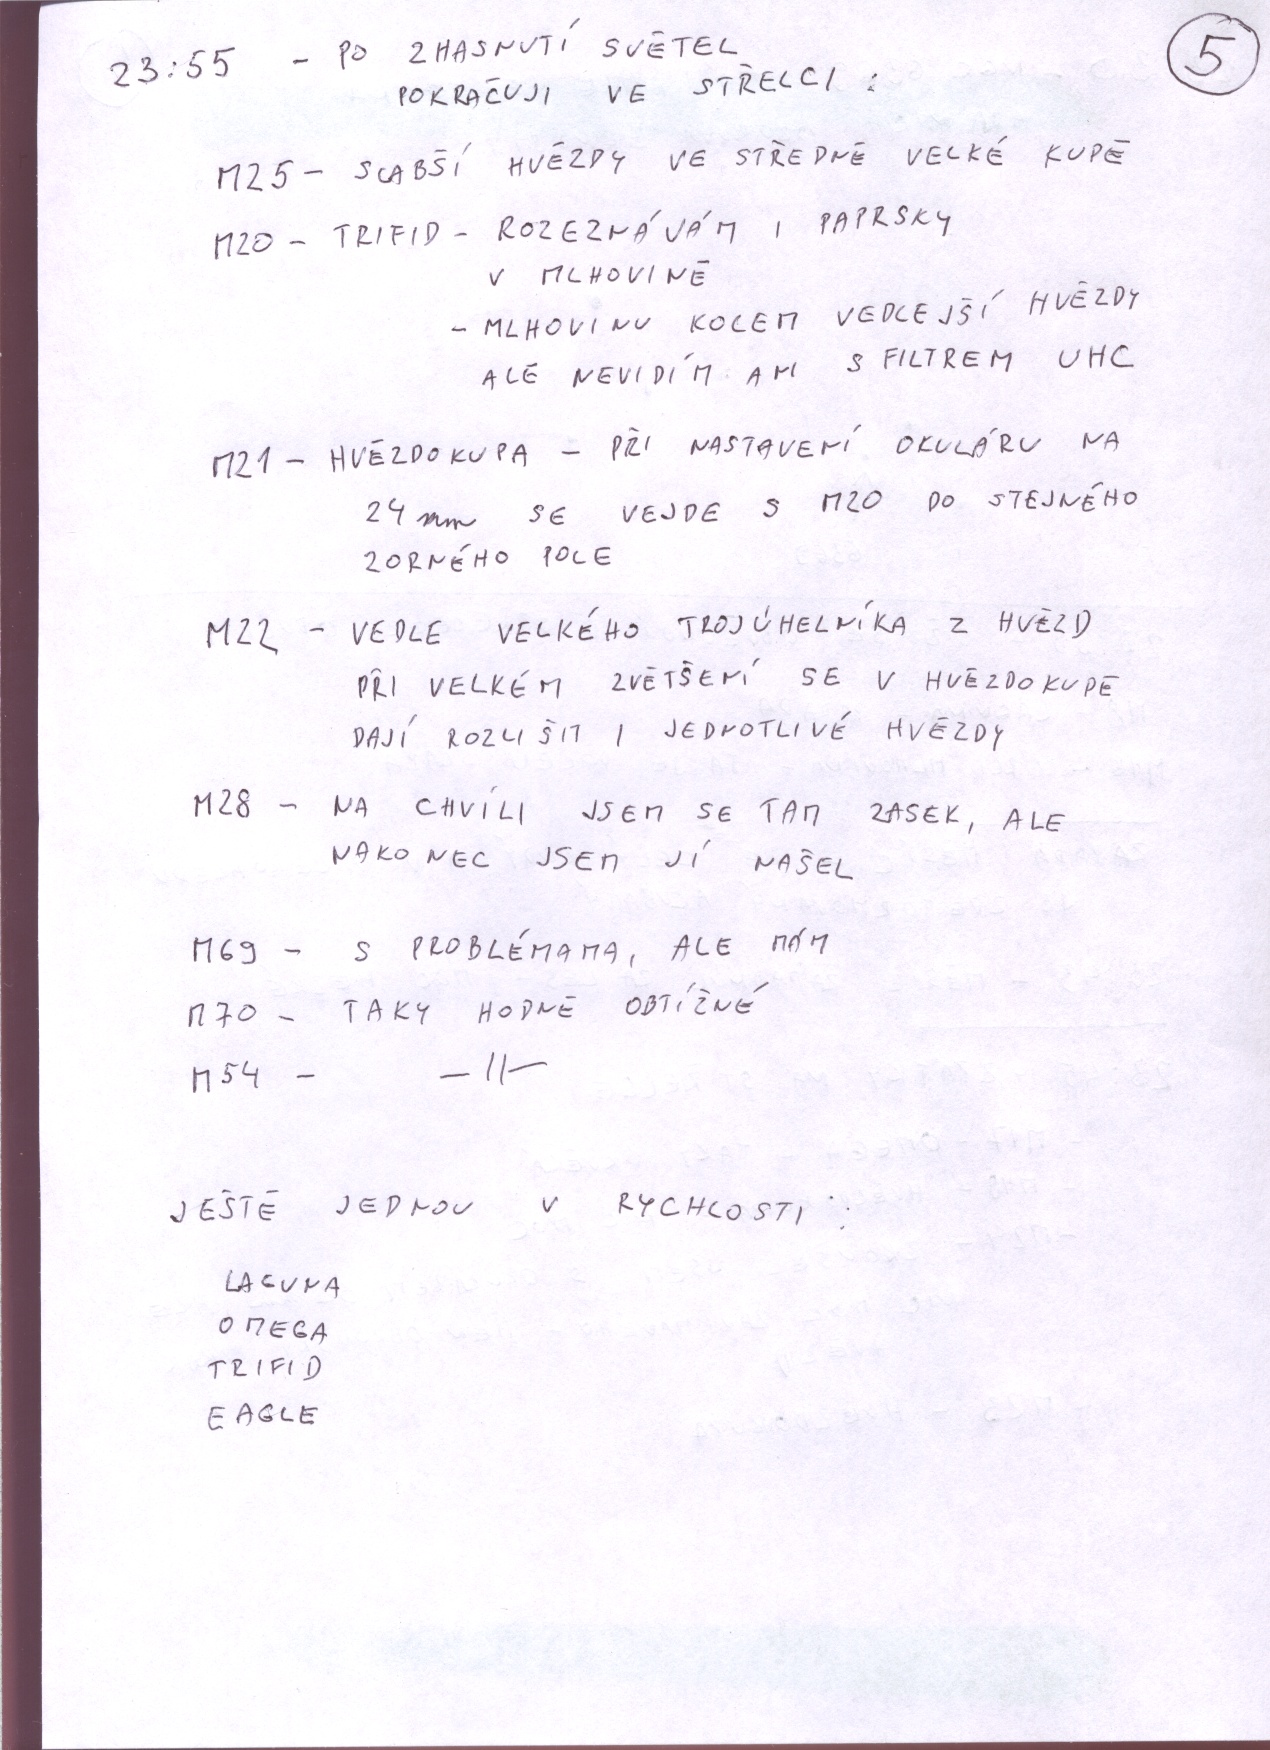 5
23:55 - PO ZHASNUTÍ SVĚTEL
POKRAČUJI VE STŘELCI:
M25 - SLABŠÍ HVĚZDY VE STŘEDNĚ VELKÉ KUPĚ
M20 - TRIFID - ROZEZNÁVÁM I PAPRSKY
V MLHOVINĚ
- MLHOVINU KOLEM VEDLEJŠÍ HVĚZDY
ALE NEVIDÍM ANI S FILTREM UHC
M21 - HVĚZDOKUPA - PŘI NASTAVENÍ OKULÁRU NA
24 mm SE VEJDE S M20 DO STEJNÉHO
ZORNÉHO POLE
M22 - VEDLE VELKÉHO TROJÚHELNÍKA Z HVĚZD
PŘI VELKÉM ZVĚTŠENÍ SE V HVĚZDOKUPĚ
DAJÍ ROZLIŠIT I JEDNOTLIVÉ HVĚZDY
M28 - NA CHVÍLI JSEM SE TAM ZASEK, ALE
NAKONEC JSEM JÍ NAŠEL
M69 - S PROBLÉMAMA, ALE MÁM
M70 - TAKY HODNĚ OBTÍŽNÉ
M54 - -||-
JEŠTĚ JEDNOU V RYCHLOSTI:
LAGUNA
OMEGA
TRIFID
EAGLE